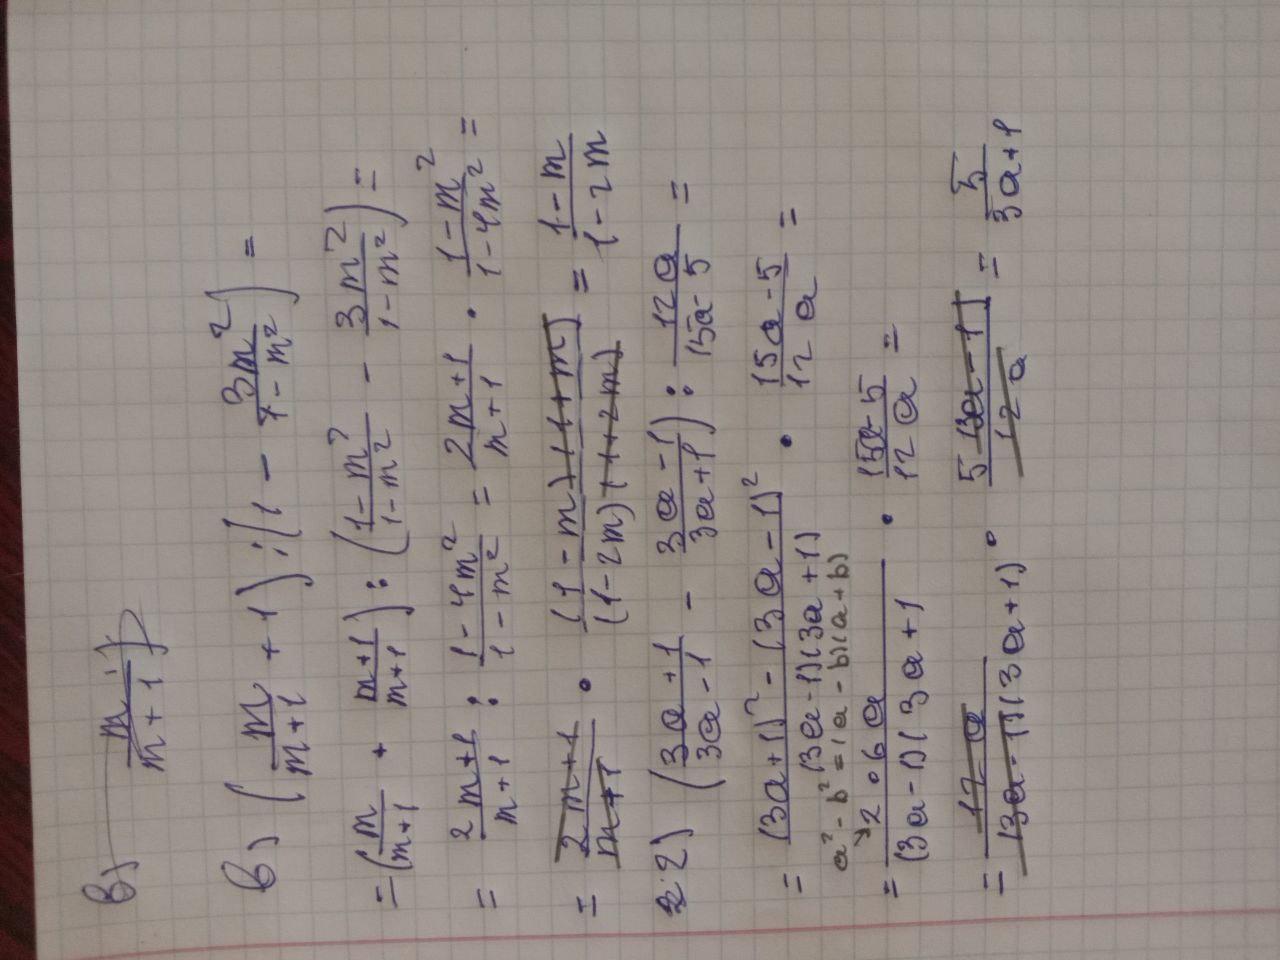 в) m/(m+1)
в) (m/(m+1) + 1) : (1 - 3m²/(1-m²)) =
= (m/(m+1) + (m+1)/(m+1)) : ((1-m²)/(1-m²) - 3m²/(1-m²)) =
= (2m+1)/(m+1) : (1-4m²)/(1-m²) = (2m+1)/(m+1) · (1-m²)/(1-4m²) =
= (2m+1)/(m+1) · (1-m)(1+m)/((1-2m)(1+2m)) = (1-m)/(1-2m)
2) ((3a+1)/(3a-1) - (3a-1)/(3a+1)) : 12a/(15a-5) =
= ((3a+1)² - (3a-1)²)/((3a-1)(3a+1)) · (15a-5)/(12a) =
a² - b² = (a-b)(a+b)
= 2·6a/((3a-1)(3a+1) · (15a-5)/(12a) =
= 12a/((3a-1)(3a+1) · 5(3a-1)/(12a) = 5/(3a+1)